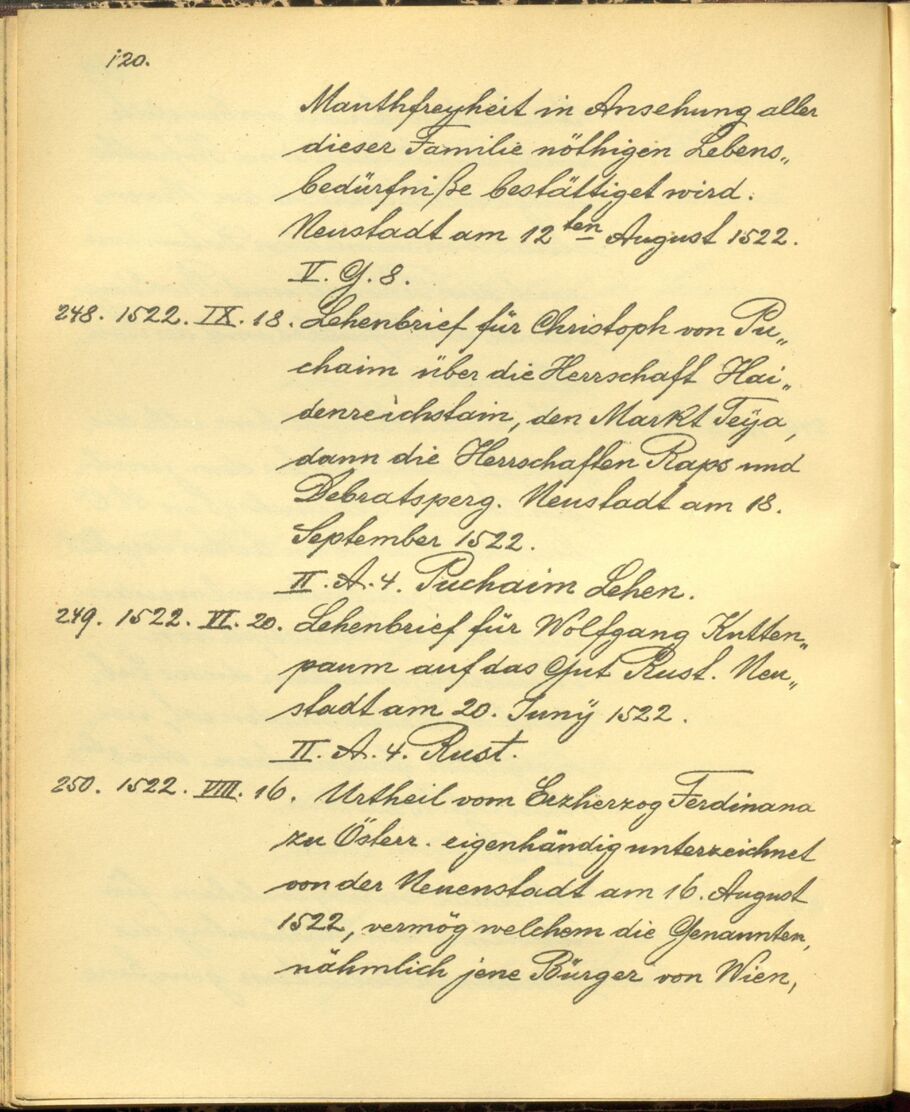 120.
Mauthfreyheit in Ansehung aller
dieser Familie nöthigen Lebens„
bedürfniße bestättiget wird.
Neustadt am 12ten August 1522.
V. G. 8.
248. 1522. IX. 18. Lehenbrief für Christoph von Pu„
chaim über die Herrschaft Hai„
denreichstain, den Markt Teÿa,
dann die Herrschaften Raps und
Debratsperg. Neustadt am 18.
September 1522.
II. A. 4. Puchaim Lehen.
249. 1522. VI. 20. Lehenbrief für Wolfgang Kutten„
paum auf das Gut Rust. Neu„
stadt am 20. Junÿ 1522.
II. A. 4. Rust.
250. 1522. VIII. 16. Urtheil vom Erzherzog Ferdinand
zu Österr. eigenhändig unterzeichnet
von der Neuenstadt am 16. August
1522, vermög welchem die Genannten,
nähmlich jene Bürger von Wien,